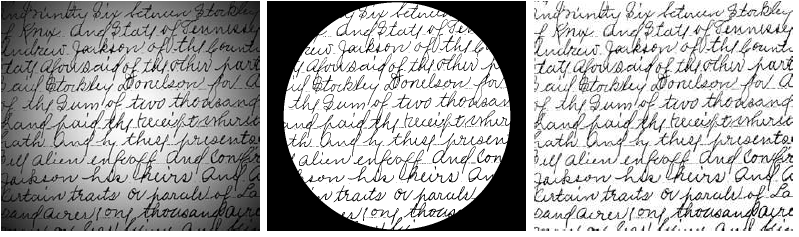 ind Ninety Six between Stockley
of Knox And State of Tennessey
Andrew Jackson of the Count
tate Aforesaid of the other part
aid Stockley Donelson for A
of the Sum of two thousand
hand paid the receipt wherei
hath And by these presents
ell alien enfeoff And Confir
Jackson his heirs And A
Certain traits or parcels of La
sand acres long thousand acre
Six between
And State of Tenn
Jackson of the
Aforesaid of the other
Stockley Donelson for
the Sum of two thousand
paid the receipt wher
And by these presen
alien enfeoff And Con
his heirs An
traits or parcels
acres long thous
ind Ninety Six between Stockley
of Knox And State of Tennessey
Andrew Jackson of the Count
tate Aforesaid of the other part
aid Stockley Donelson for A
of the Sum of two thousand
hand paid the receipt wherei
hath And by these presents
ell alien enfeoff And Confir
Jackson his heirs And A
Certain traits or parcels of La
sand acres long thousand acre